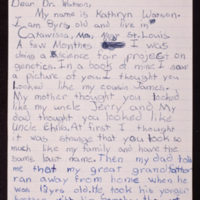 Dear Dr. Watson,
My name is Kathryn Watson.
I am 8yrs old and live in
Catawissa, Mo. Near St. Louis
A few Monthes I was
doing a science fair project on
genetics. In a book I saw
a picture of you. I thought you
Looked like my cousin James.
My mother thought you looked
like my uncle Jerry and My
dad thought you looked like
uncle Chilo. At first I thought
it was strange that you look so
much like my family and have the
same last name. Then my dad told
me that my great grandfather
ran away from home when he
was 12yrs old. He took his younger